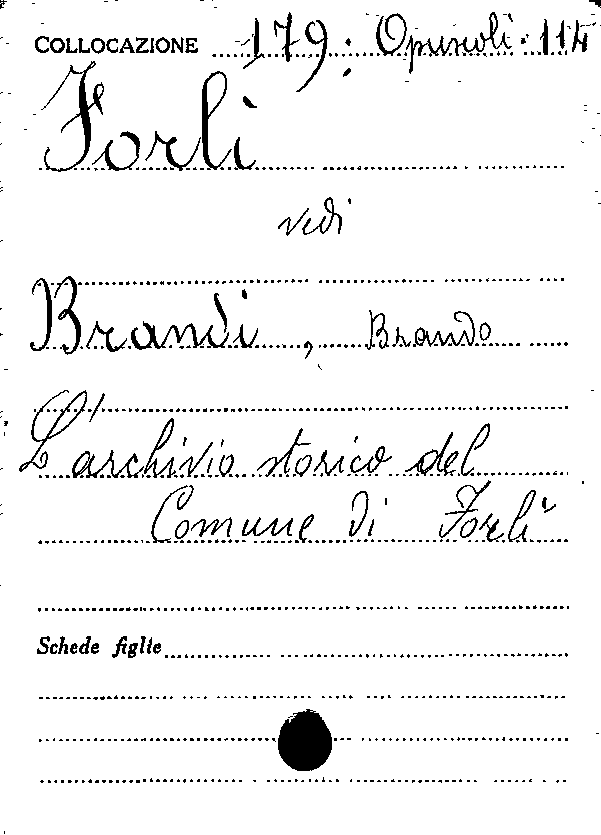 COLLOCAZIONE 179. Opuscoli. 114
Forlì
vedi
Brandi, Brando
L'archivio storico del
Comune di Forlì
Schede figlie